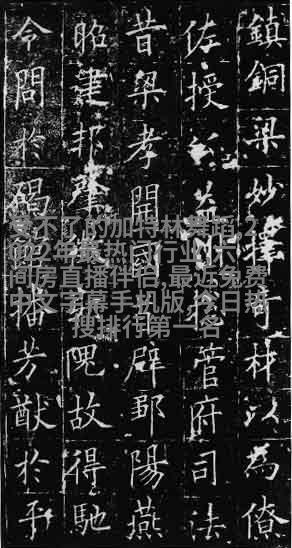 鎮銅梁妙擇奇材以為僚
佐授公益州管府司法
昔梁孝開國首辟鄒陽燕
昭建邦肇徵郭隗故得馳
令問於碣館播芳猷於平
受不了的加特林舞蹈,2
022年最热门行业,六
间房直播伴侣,最近免费
中文字幕手机版,今日热
搜排行第一名